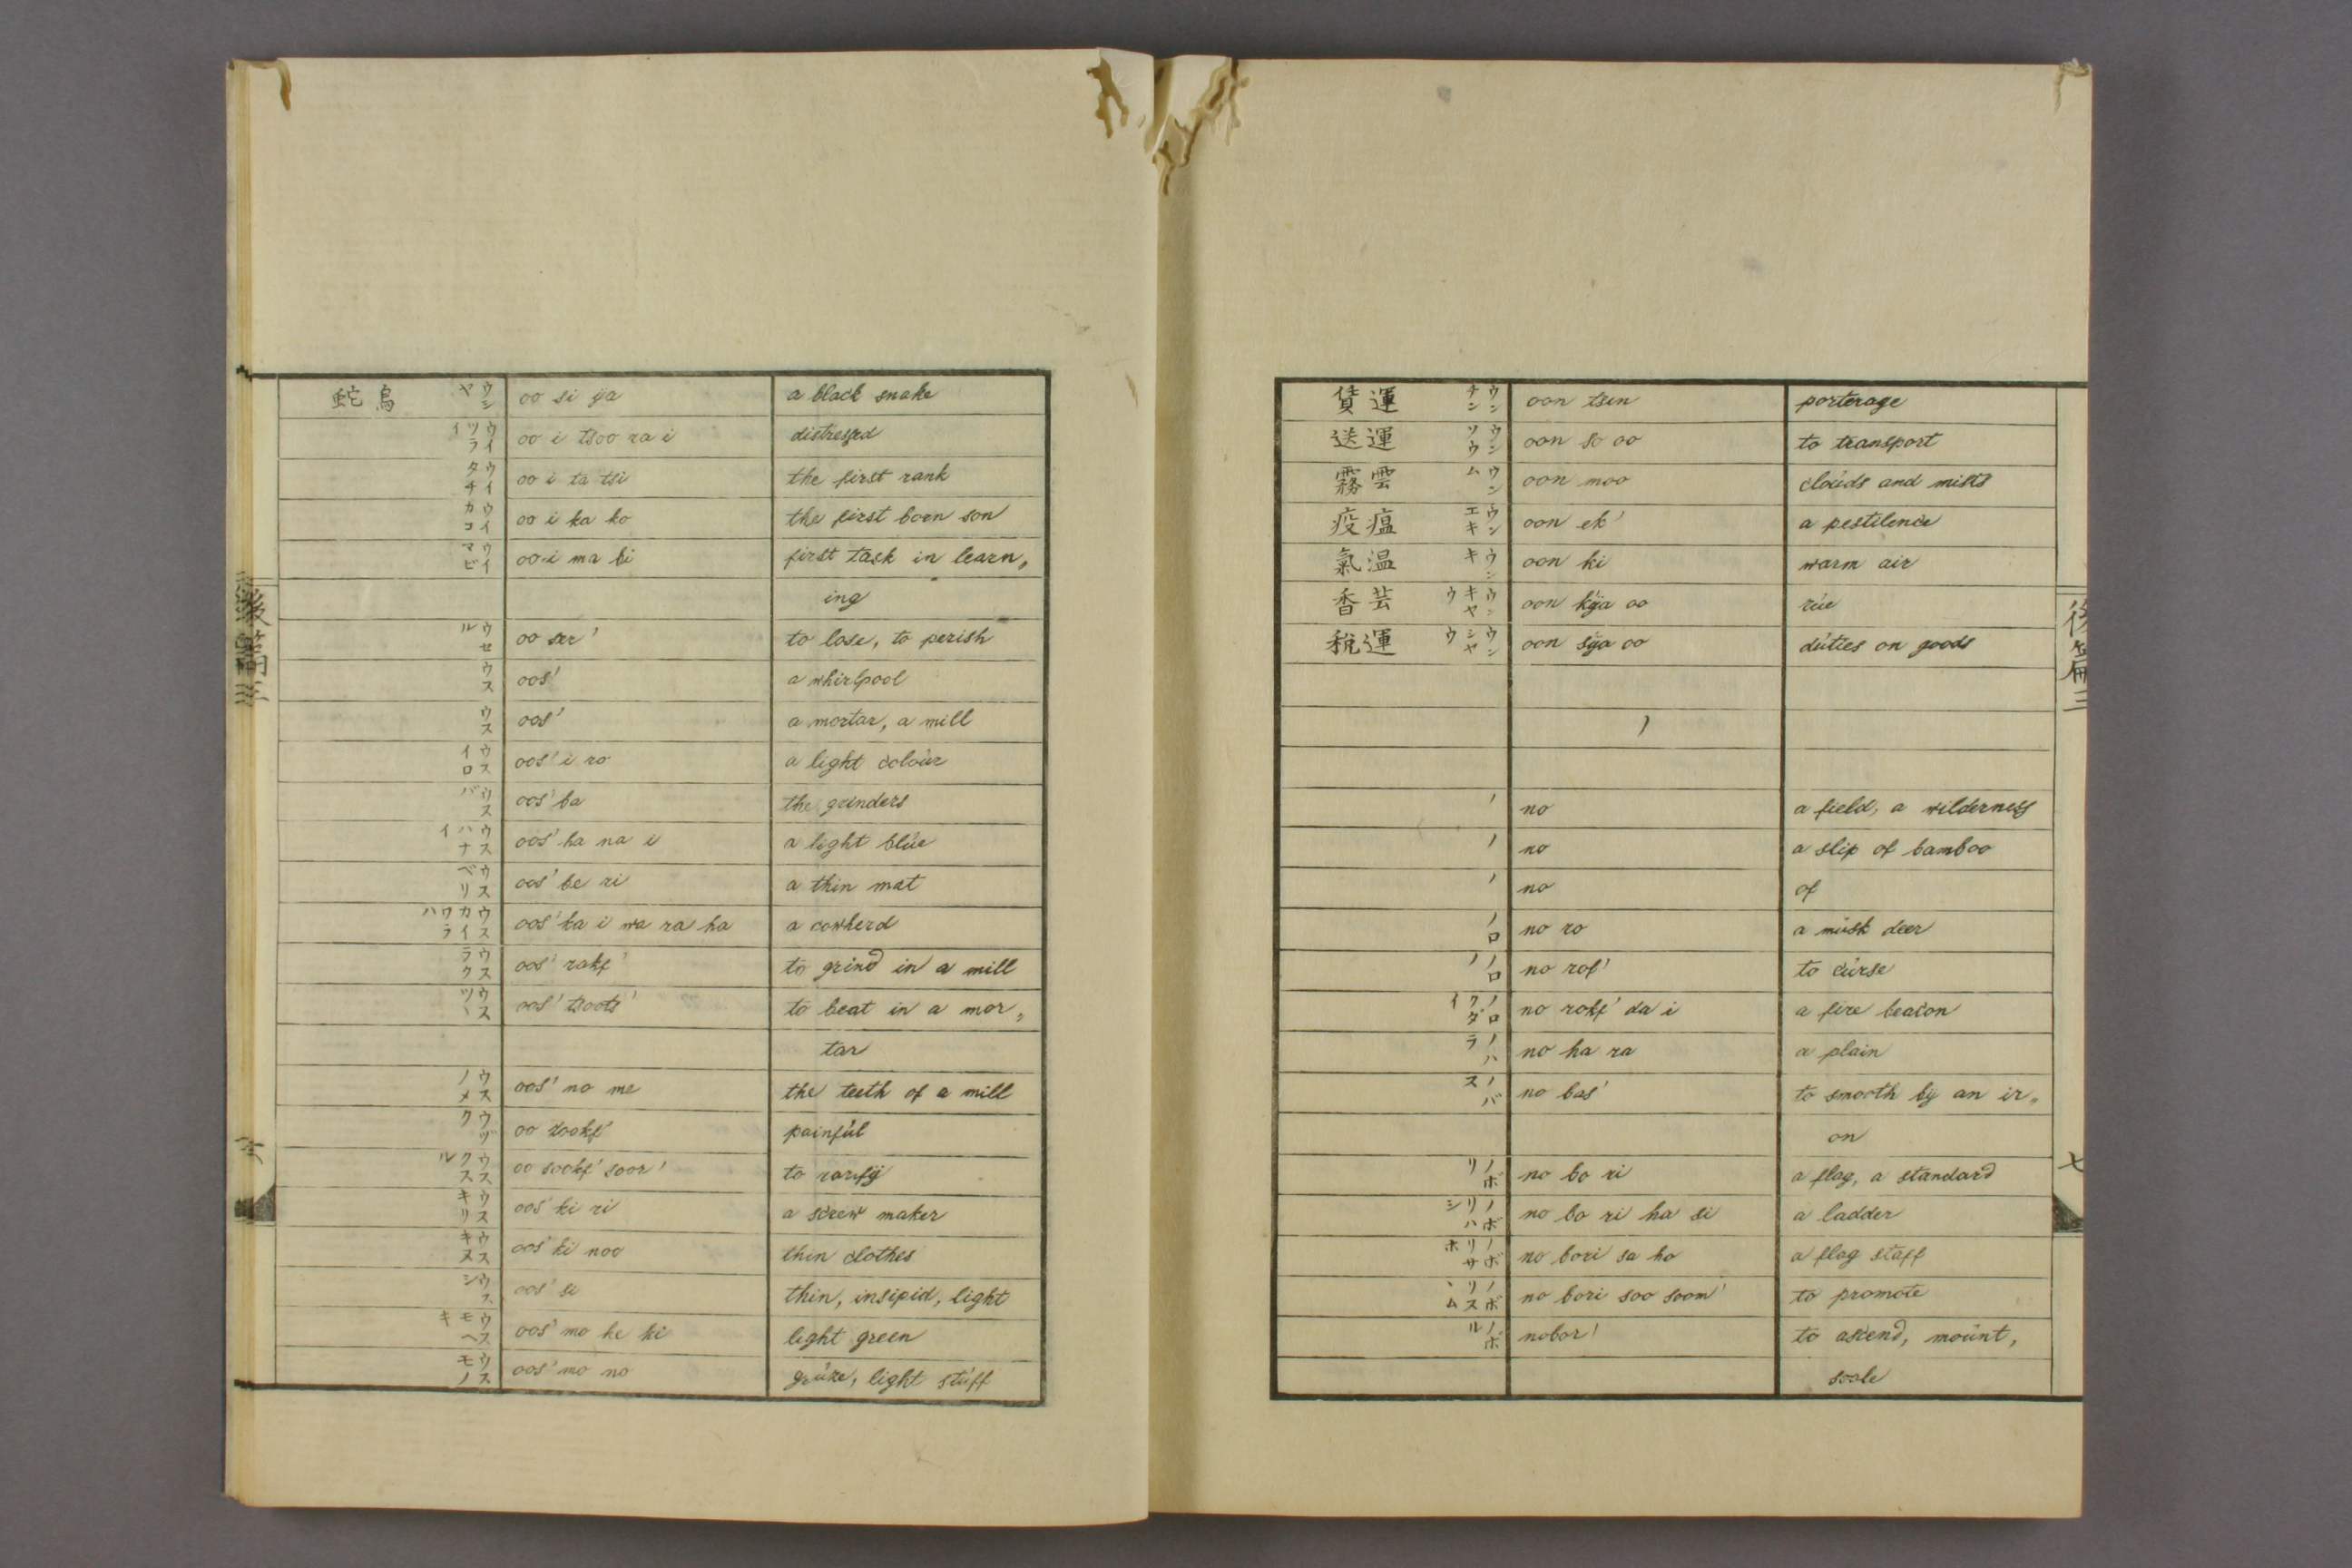 烏蛇 ウシヤ oo si ÿa a black snake
ウイツライ oo i tsoo ra i distressed
ウイタチ oo i ta tsi the first rank
ウイカコ oo i ka ko the first born son
ウイマビ oo i ma bi first task in learn„
ing
ウセル oo ser' to lose, to perish
ウス oos' a whirlpool
ウス oos' a mortar, a mill
ウスイロ oos' i ro a light colour
ウスバ oos' ba the grinders
ウスハナイ oos' ha na i a light blue
ウスベリ oos' be ri a thin mat
ウスカイワラハ oos' ka i wa ra ha a cowherd
ウスラク oos' rakf' to grind in a mill
ウスツヽ oos' tsoots' to beat in a mor„
tar
ウスノメ oos' no me the teeth of a mill
ウヅク oo zookf' painful
ウスクスル oo sookf' soor' to rarifÿ
ウスキリ oos' ki ri a screw maker
ウスキヌ oos' ki noo thin clothes
ウスシ oos' si thin, insipid, light
ウスモヘキ oos' mo he ki light green
ウスモノ oos' mo no light stuff
後篇三
六
運賃 ウンチン oon tsin porterage
運送 ウンソウ oon so oo to transport
雲霧 ウンム oon moo clouds and mists
瘟疫 ウンエキ oon ek' a pestilence
温氣 ウンキ oon ki warm air
芸香 ウンキヤウ oon kÿa oo rue
運税 ウンシヤウ oon sÿa oo duties on goods
ノ
ノ no a field, a wilderness
ノ no a slip of bamboo
ノ no of
ノロ no ro a musk deer
ノロフ no rof' to curse
ノロクダイ no rokf' da i a fire beacon
ノハラ no ha ra a plain
ノバス no bas' to smooth bÿ an ir„
on
ノボリ no bo ri a flag, a standard
ノボリハシ no bo ri ha si a ladder
ノボリサホ no bori sa ho a flag staff
ノボリスヽム no bori soo soom' to promote
ノボル nobor' to ascend, mount,
scale
後篇三
七